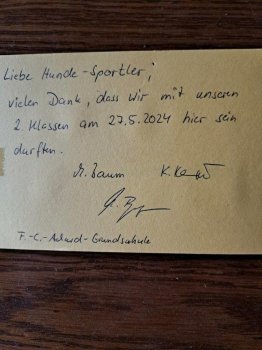 Liebe Hunde-Sportler,
vielen Dank, dass wir mit unseren
2. Klassen am 27.5.2024 hier sein
durften.
M. Baum
F.-C.-Achard-Grundschule